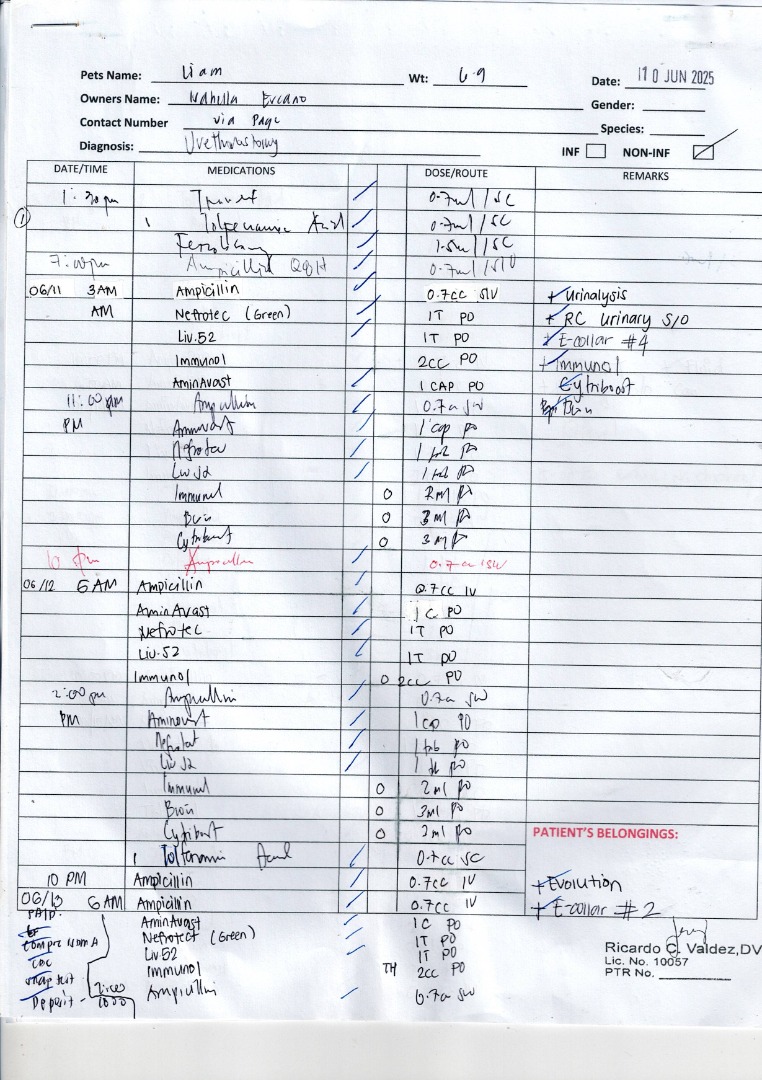 Pets Name: Liam Wt: 6.9 Date: 10 JUN 2025
Owners Name: Gender:
Contact Number via Page Species:
Diagnosis: Urethrostomy INF NON-INF
DATE/TIME MEDICATIONS DOSE/ROUTE REMARKS
1:30pm 0.7ml/SC
1 Tolfenamic Acid 0.7ml/SC
1.5ml/SC
7:00pm Ampicillin Q8H 0.7ml/SIV
06/11 3AM Ampicillin 0.7cc SIV + Urinalysis
AM Nefrotec (Green) 1T PO + RC Urinary S/O
Liv.52 1T PO + E-collar #4
Immunol 2cc PO + Immunol
AminAvast 1 CAP PO Cytriboost
11:00pm Ampicillin 0.7cc SIV
PM Aminavast 1 cap PO
Nefrotec 1 tab PO
Liv 52 1 tab PO
Immunol O 2ml PO
O 3ml PO
O 3ml PO
Ampicillin 0.7cc SIV
06/12 6AM Ampicillin 0.7cc IV
AminAvast 1C PO
Nefrotec 1T PO
Liv.52 1T PO
Immunol O 2cc PO
2:00pm Ampicillin 0.7cc SIV
PM Aminavast 1 cap PO
1 tab PO
Liv 52 1 tab PO
Immunol O 2ml PO
O 3ml PO
O 3ml PO
PATIENT'S BELONGINGS:
1 Tolfenamic Acid 0.7cc SC
10 PM Ampicillin 0.7cc IV + Evolution
06/13 6AM Ampicillin 0.7cc IV + E-collar #2
PAID: AminAvast 1C PO
Nefrotect (Green) 1T PO
Liv.52 1T PO
CBC Immunol TH 2cc PO
snap test
Deposit - Ampicillin 0.7cc SIV
Ricardo C. Valdez,DV
Lic. No. 10057
PTR No.